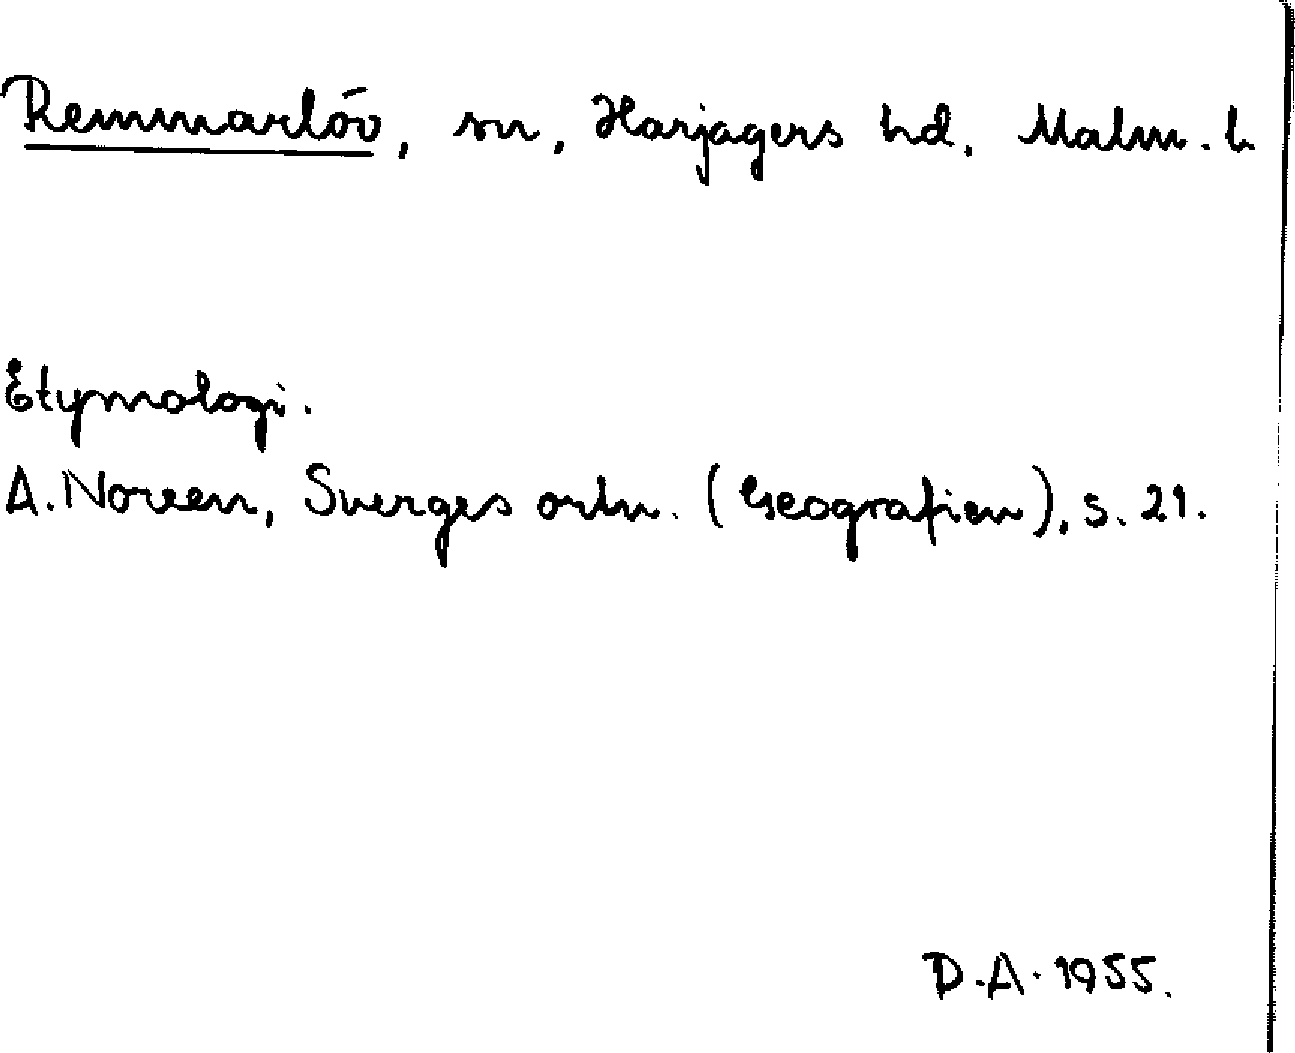 Remmarlöv, sn, Harjagers hd, Malm. l.
Etymologi.
A. Noreen, Sverges ortn. (Geografien), s. 21.
D.A. 1955.